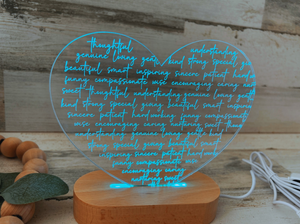 thoughtful understanding
genuine loving gentle kind strong special giving
beautiful smart inspiring sincere patient hardworking
funny compassionate wise encouraging caring nurturing
smart thoughtful understanding genuine loving gentle
kind strong special giving beautiful smart inspiring
sincere patient hardworking funny compassionate
wise encouraging caring nurturing smart
understanding genuine loving gentle kind
strong special giving beautiful smart
inspiring sincere patient hardworking
funny compassionate wise
encouraging caring
nurturing smart